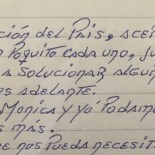 ción del País, ace
Poquito cada uno, ju
a Solucionar algun
s adelante.
Monica y yo Podam
s más.
e nos Pueda necesit